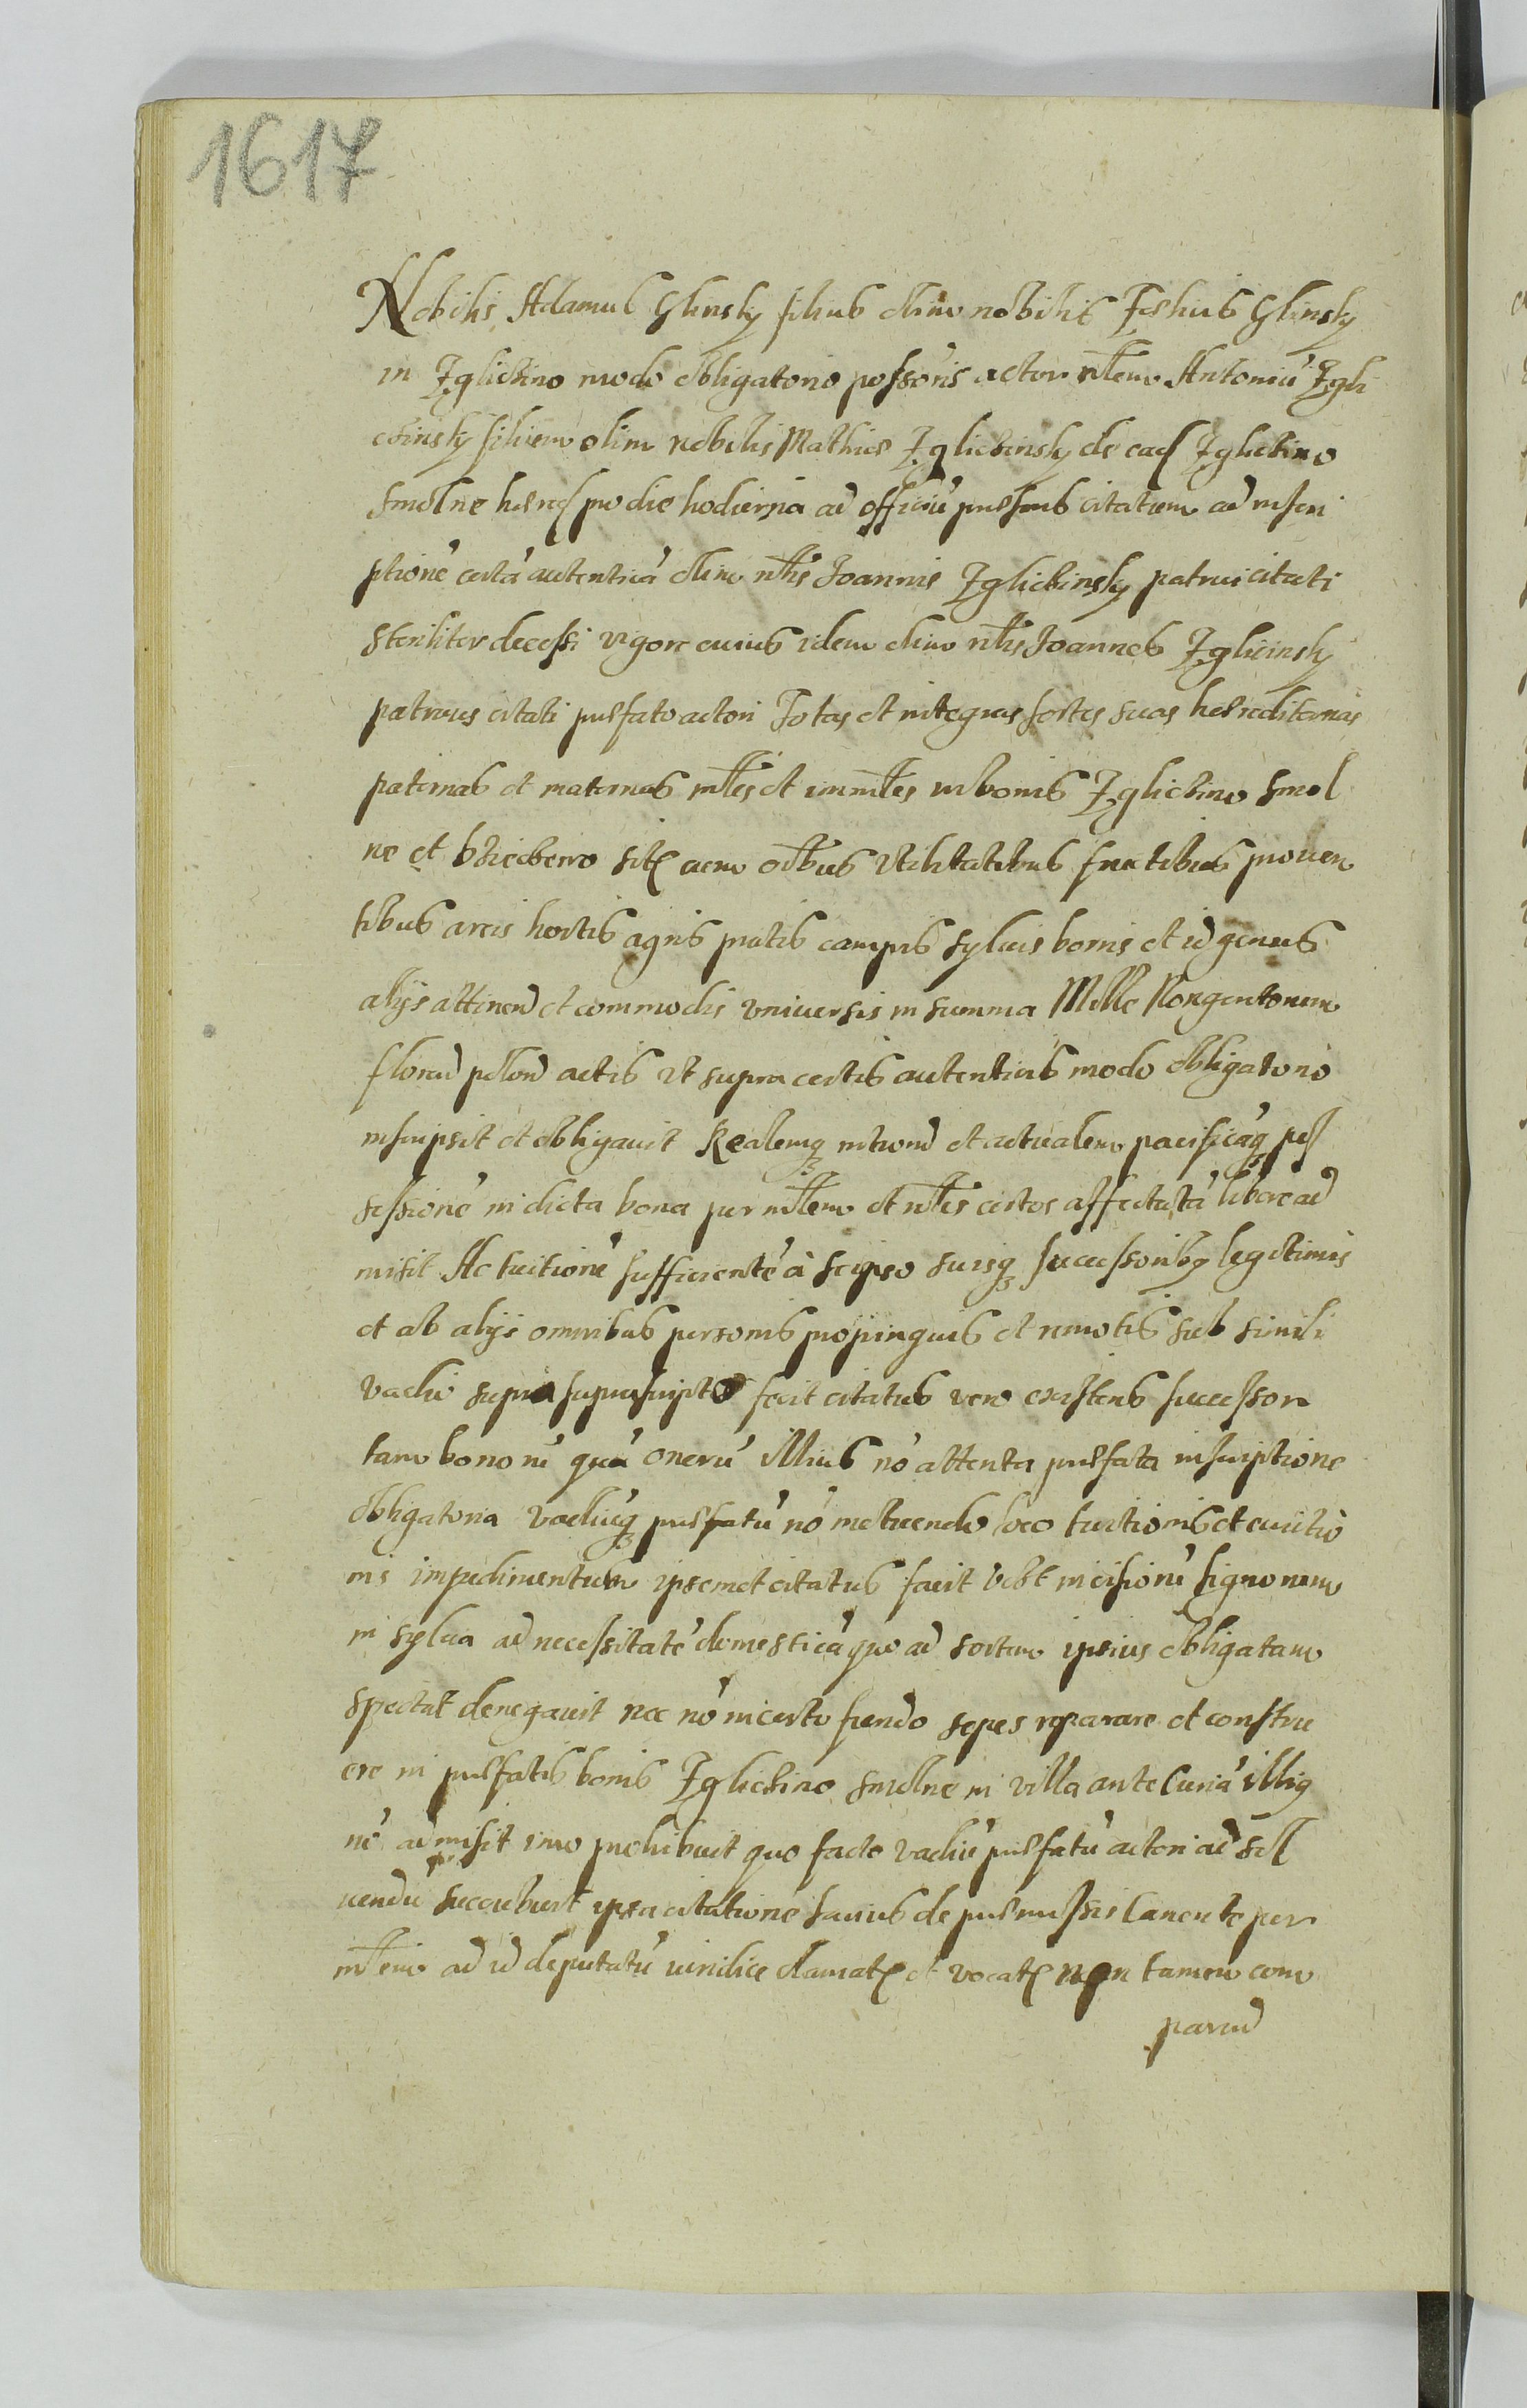 1617
Nobilis Adamus Glinsky filius olim nobilis Glinsky
in Iglicžino modo obligatorio possoris actor nblem Antoniu Igli
czinsky filium olim nobilis Mathiæ Iglicžinsky de ead Iglicžino
Smolne hæred pro die hodierna ad officiu præsens citatum ad inscri
ptione certa autentica olim nblis Joannis Iglicžinsky patrui citati
steriliter decessi vigore cuius idem olim nblis Joannes Iglicinsky
patruus citati præfato actori Totas et integras sortes suas hæreditarias
paternas et maternas mbles et immbles in bonis Iglicžino Smol
ne et sit cum oibus utilitatibus fructibus proven
tibus areis hortis agris pratis campis sylvis borris et id genus
alijs attinen et commodis universis in summa Mille Nongentorum
floren polon actis ut supra certis autenticis modo obligatorio
inscripsit et obligavit Realemq introm et actualem pacificaq pos
sessione in dicta bona per mblem et nbles certos affectata libere ad
misit Ac tuitione sufficiente à seipso suisq successoribq legitimis
et ab alijs omnibus personis propinquis et remotis sub simili
vadio supra suprascripto fecit citatus vero existens successor
tam bonoru qua oneru illius no attenta præfata inscriptione
obligatoria vadiuq præfatu no metuendo loco tuitionis et evictio
nis impedimentum ipsemet citatus facit incisione lignorum
in sylva ad necessitate domestica quo ad sortem ipsius obligatam
spectat denegavit nec no incerto sepes reparare et constru
ere in præfatis bonis Iglicžino Smolne in villa ante Curia illiq
no admisit imo prohibuit quo facto vadiu præfatu actori ad sol
vendu succubuit ipsa citatione latius de præmissis Canente per
mblem ad id deputatu iuridice clamat et vocat non tamen com
paren